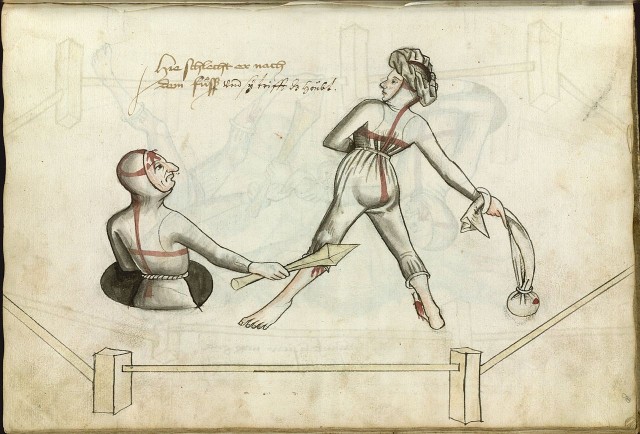 Hie schlecht er nach
dem fuß Und sy trifft dz Houbt.